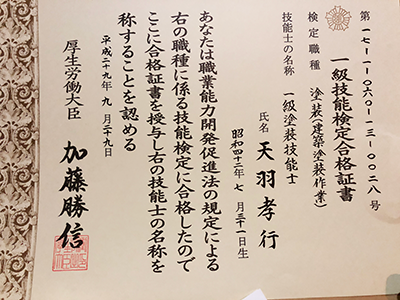 第一七-一-〇六〇-一三-〇〇二八号
一級技能検定合格証書
検定職種　塗装(建築塗装作業)
技能士の名称　一級塗装技能士
氏名　天羽孝行
昭和四十二年　七月三十一日生
あなたは職業能力開発促進法の規定による
右の職種に係る技能検定に合格したので
ここに合格証書を授与し右の技能士の名称を
称することを認める
平成二十九年　九月二十九日
厚生労働大臣　加藤勝信